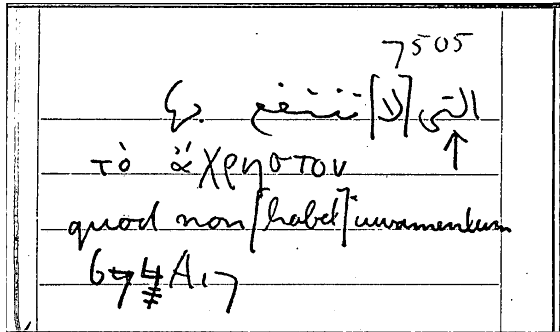 7505
التى [لا] تنتفع بها
↑
τὸ ἄχρηστον
quod non [habet] iuvamentum
674 A 17